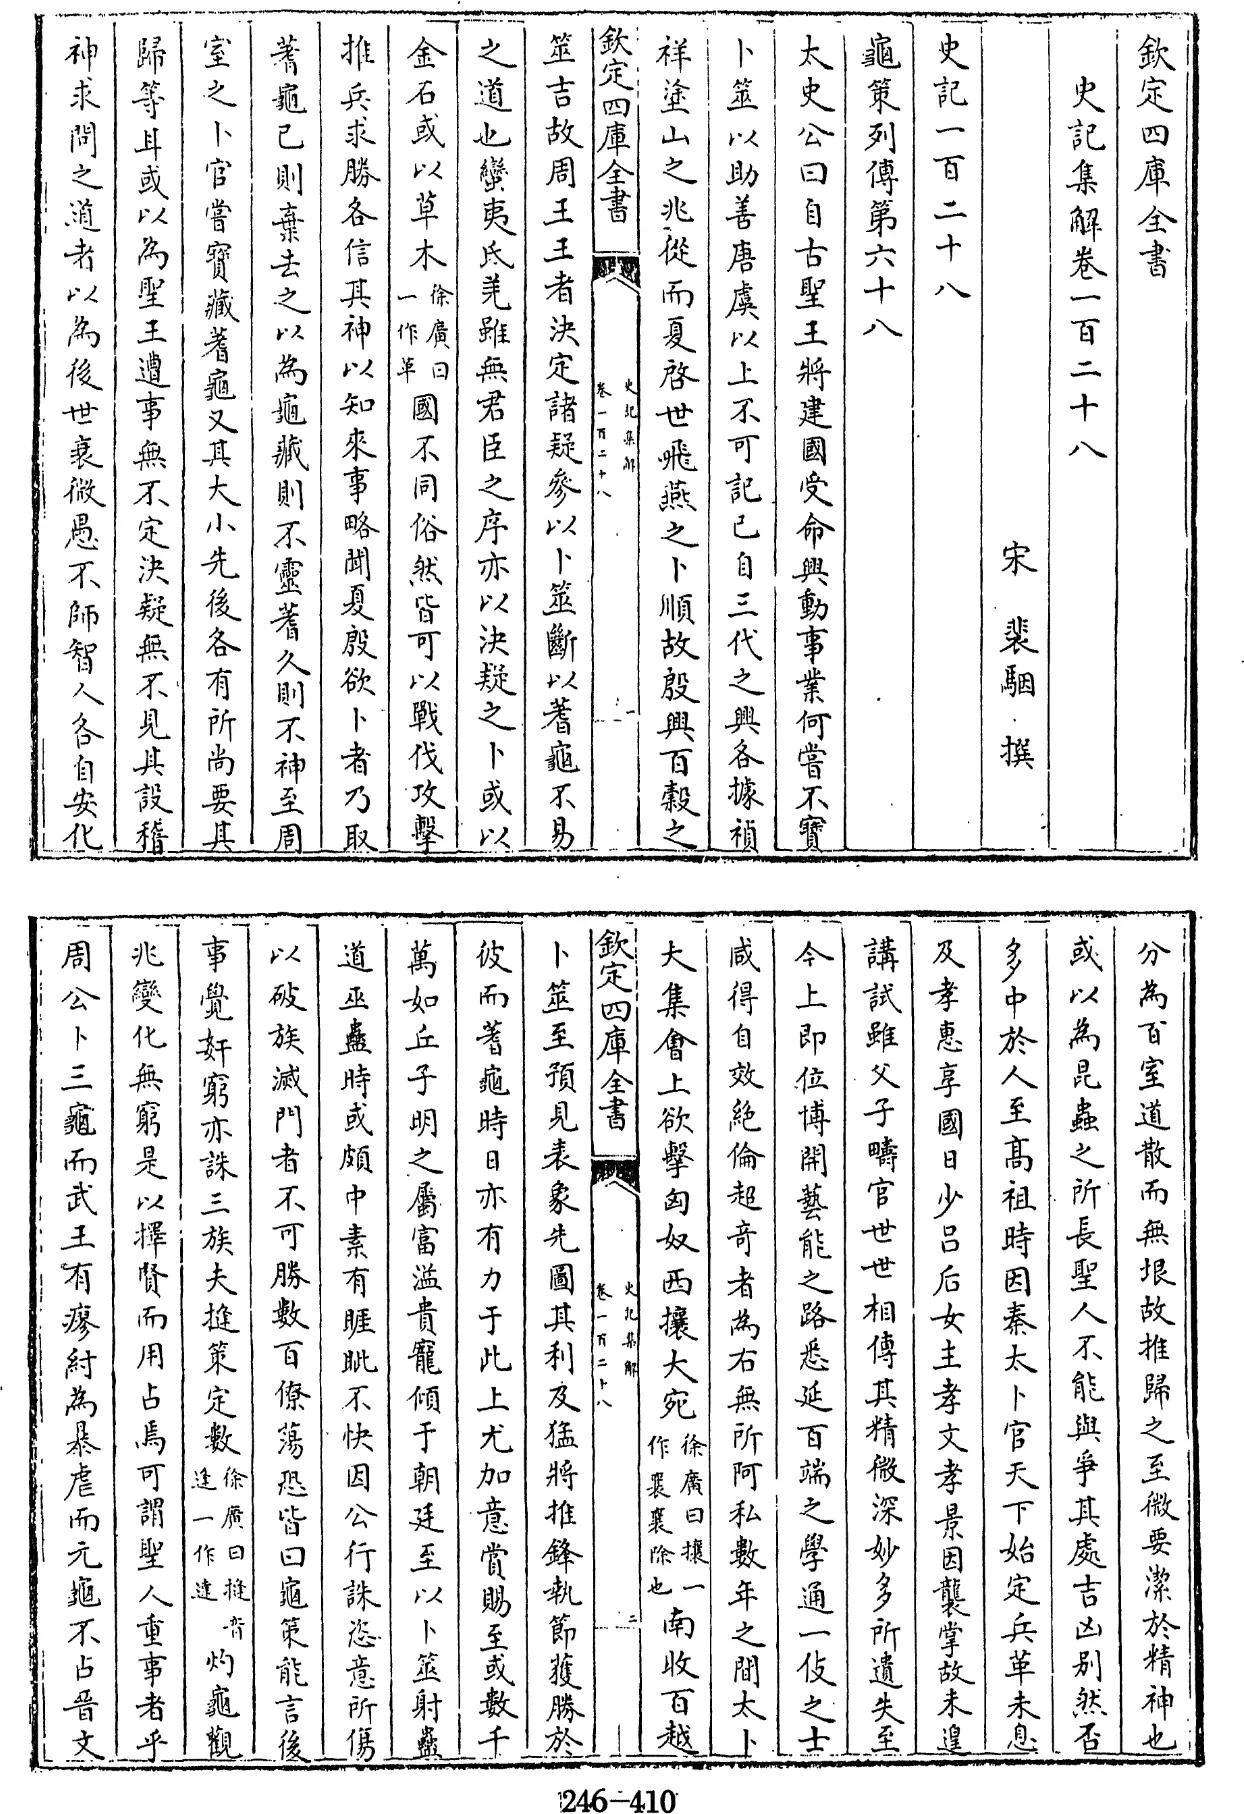 欽定四庫全書
史記集解卷一百二十八
宋 裴駰 撰
史記一百二十八
龜策列傳第六十八
太史公曰自古聖王將建國受命興動事業何嘗不寶
卜筮以助善唐虞以上不可記已自三代之興各據禎
祥塗山之兆從而夏啓世飛燕之卜順故殷興百穀之
欽定四庫全書
史記集解
卷一百二十八
一
筮吉故周王王者決定諸疑參以卜筮斷以蓍龜不易
之道也蠻夷氐羌雖無君臣之序亦以決疑之卜或以
金石或以草木徐廣曰一作革國不同俗然皆可以戰伐攻擊
推兵求勝各信其神以知來事略聞夏殷欲卜者乃取
蓍龜已則棄去之以為龜藏則不靈蓍久則不神至周
室之卜官嘗寶藏蓍龜又其大小先後各有所尚要其
歸等耳或以為聖王遭事無不定決疑無不見其設稽
神求問之道者以為後世衰微愚不師智人各自安化
分為百室道散而無垠故推歸之至微要潔於精神也
或以為昆蟲之所長聖人不能與爭其處吉凶别然否
多中於人至髙祖時因秦太卜官天下始定兵革未息
及孝惠享國日少吕后女主孝文孝景因襲掌故未遑
講試雖父子疇官世世相傳其精微深妙多所遺失至
今上即位博開藝能之路悉延百端之學通一伎之士
咸得自效絶倫超竒者為右無所阿私數年之間太卜
大集會上欲擊匈奴西攘大宛徐廣曰攘一作襄襄除也南收百越
欽定四庫全書
史記集解
卷一百二十八
二
卜筮至預見表象先圖其利及猛將推鋒執節獲勝於
彼而蓍龜時日亦有力于此上尤加意賞賜至或數千
萬如丘子明之屬富溢貴寵傾于朝廷至以卜筮射蠱
道巫蠱時或頗中素有睚眦不快因公行誅恣意所傷
以破族滅門者不可勝數百僚蕩恐皆曰龜策能言後
事覺姧窮亦誅三族夫摓策定數徐廣曰摓音逢一作達灼龜觀
兆變化無窮是以擇賢而用占焉可謂聖人重事者乎
周公卜三龜而武王有瘳紂為暴虐而元龜不占晉文
246-410